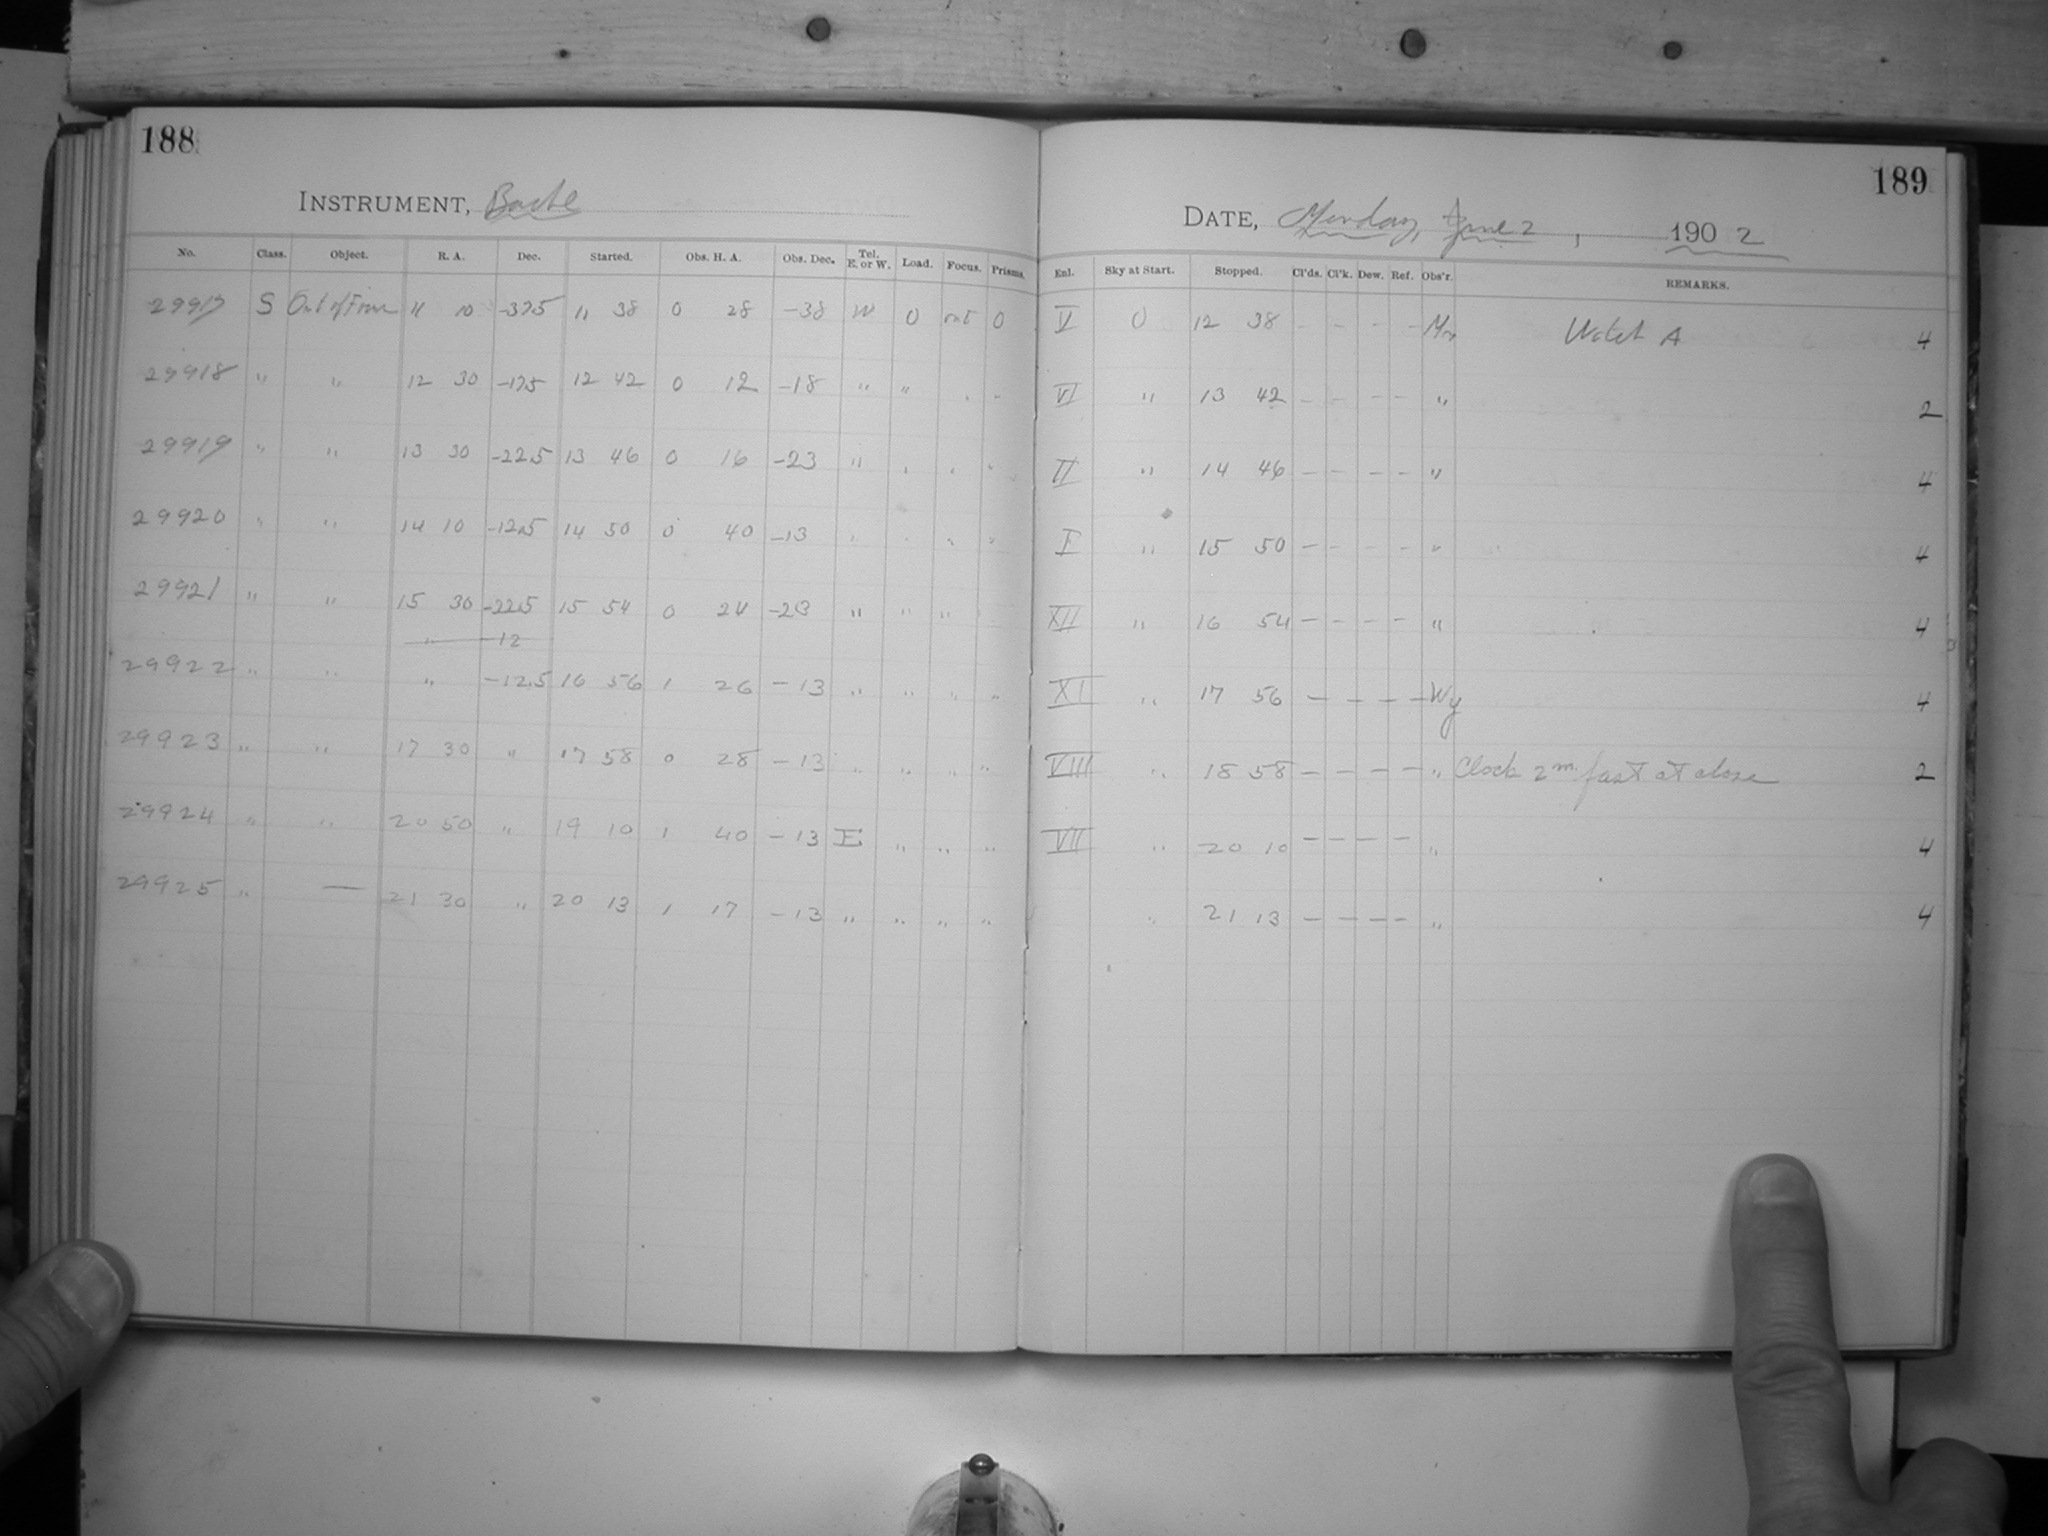 188
INSTRUMENT, Bache
No. Class. Object. R. A. Dec. Started. Obs. H. A. Obs. Dec. Tel. E. or W. Load. Focus. Prisms.
29917 S Out of Focus 11 10 -37.5 11 38 0 28 -38 W 0 out 0
29918 " " 12 30 -17.5 12 42 0 12 -18 " " " "
29919 " " 13 30 -22.5 13 46 0 16 -23 " " " "
29920 " " 14 10 -12.5 14 50 0 40 -13 " " " "
29921 " " 15 30 -22.5 15 54 0 24 -23 " " "
" -12
29922 " " " -12.5 16 56 1 26 -13 " " " "
29923 " " 17 30 " 17 58 0 28 -13 " " " "
29924 " " 20 50 " 19 10 1 40 -13 E " " "
29925 " — 21 30 " 20 13 1 17 -13 " " " "
189
DATE, Monday, June 2, 1902
Enl. Sky at Start. Stopped. Cl'ds. Cl'k. Dew. Ref. Obs'r. REMARKS.
V 0 12 38 - - - - Watch A 4
VI " 13 42 - - - - " 2
II " 14 46 - - - - " 4
I " 15 50 - - - - " 4
XII " 16 54 - - - - " 4
XI " 17 56 - - - - Wy 4
VIII " 18 58 - - - - " Clock 2m. fast at close 2
VII " 20 10 - - - - " 4
" 21 13 - - - - " 4